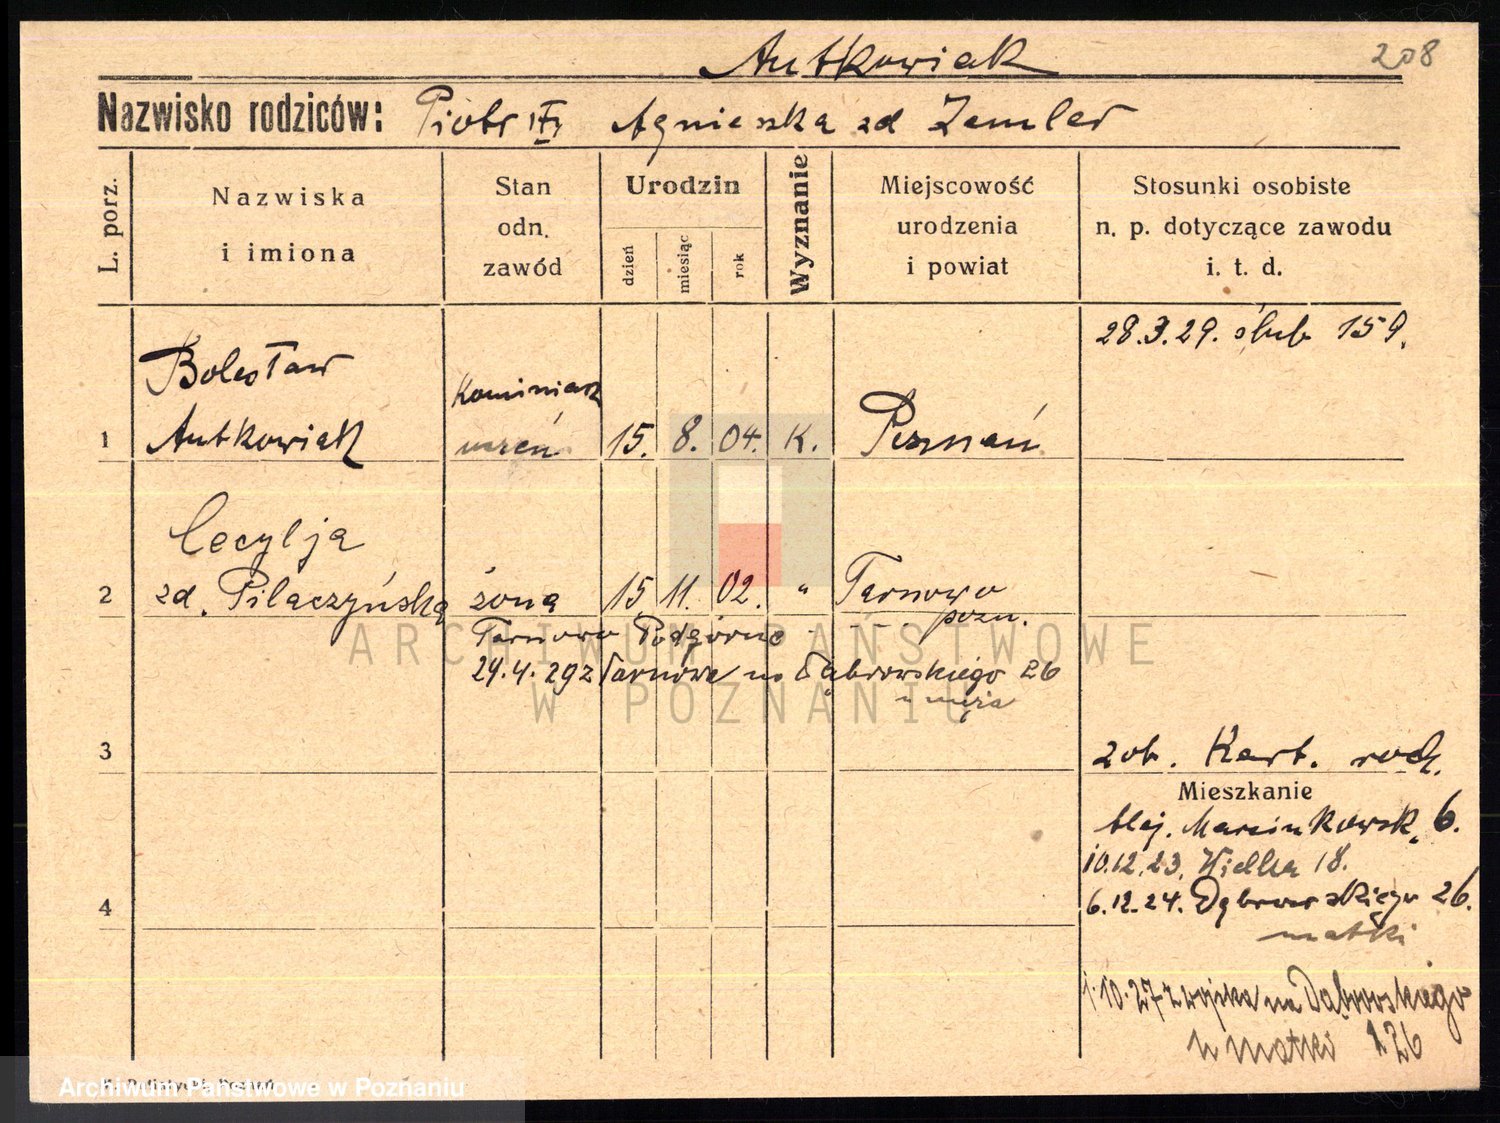 Antkowiak
208
Nazwisko rodziców: Piotr Agnieszka zd Zemler
L. porz.
Nazwiska i imiona
Stan odn. zawód
Urodzin
dzień
miesiąc
rok
Wyznanie
Miejscowość urodzenia i powiat
Stosunki osobiste n. p. dotyczące zawodu i. t. d.
28.3.29. ślub 159.
Bolesław
Kominiarz
1 Antkowiak uczeń 15. 8. 04. K. Poznań
Cecylja
2 zd. Pilaczyńska żona 15 11. 02. " Tarnowo
pozn.
Tarnowo Podgórne
24.4.29 z Tarnowa na Dąbrowskiego 26
u męża
3
zob. Kart. rodz.
Mieszkanie
Alej. Marcinkowsk. 6.
10.12.23. Wielka 18.
4
6.12.24. Dąbrowskiego 26.
matki
1.10.27 z wojska na Dąbrowskiego
u matki 26
ARCHIWUM PAŃSTWOWE
W POZNANIU
Archiwum Państwowe w Poznaniu